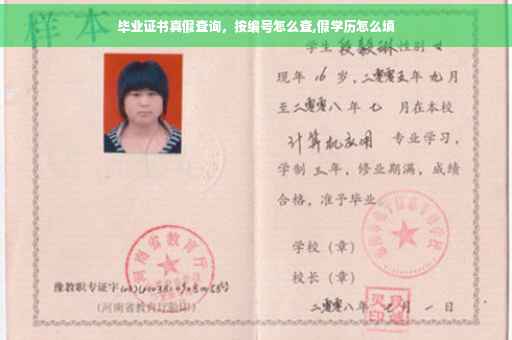 毕业证书真假查询，按编号怎么查,假学历怎么填
样本
河南省教育厅
豫教职专证字
号
(河南省教育厅验印)
学生 段毅琳 性别 女
现年 16 岁，二零零五年 九 月
至二零零八年 七 月在本校
计算机应用 专业学习，
学制 三 年，修业期满，成绩
合格，准予毕业
学校（章）
校长（章）
二零零八年 月 一 日